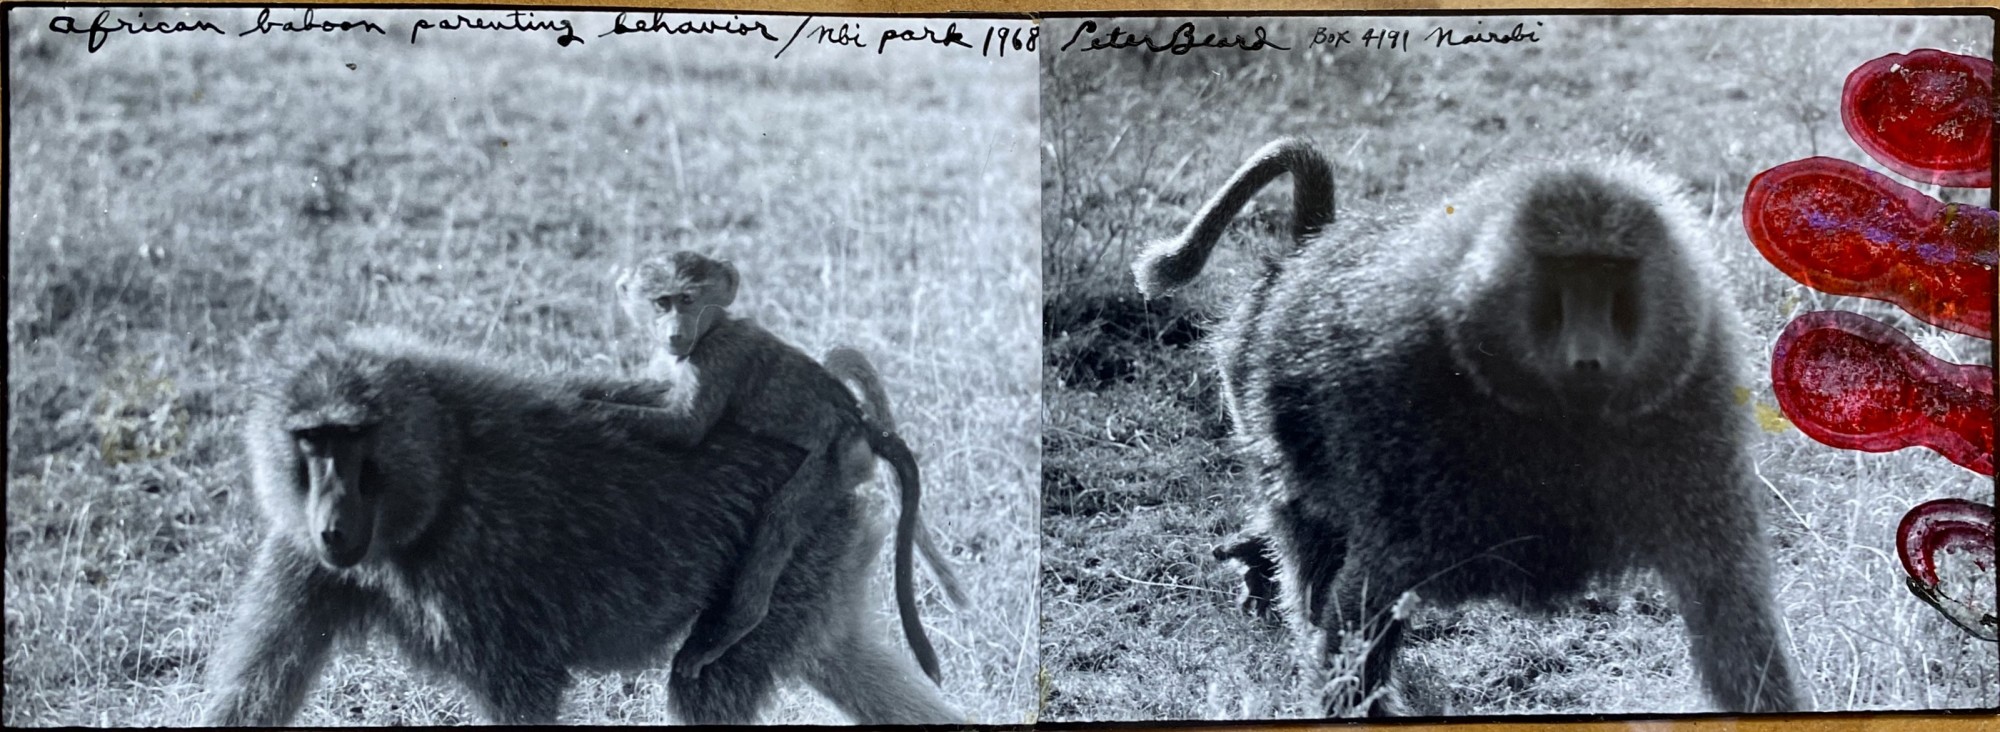 african baboon parenting behavior / nbi park 1968 Peter Beard Box 4191 Nairobi